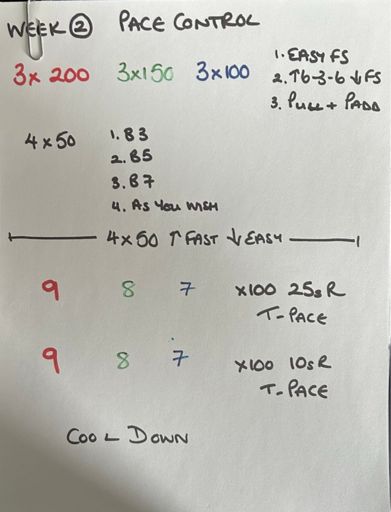 WEEK ② PACE CONTROL
3x 200 3x150 3x100
1. EASY FS
2. ↑6-3-6 ↓FS
3. PULL + PADD
4x50
1. B3
2. B5
3. B7
4. AS YOU WISH
4x50 ↑ FAST ↓ EASY
9 8 7 x100 25s R
T-PACE
9 8 7 x100 10s R
T-PACE
COOL DOWN